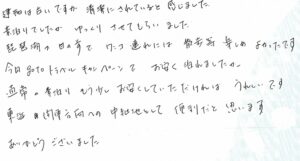 建物は古いですが 清潔にされていると感じました
素泊りでしたが ゆっくり させてもらいました
琵琶湖の目の前で 連れには 楽しめ よかったです
今回 トラベル キャンペーンで お安く 泊れましたが、
通常の素泊り もう少し お安くしていただければ うれしいです
東 関東方向への 中継地として 便利だと思います
ありがとう ございました